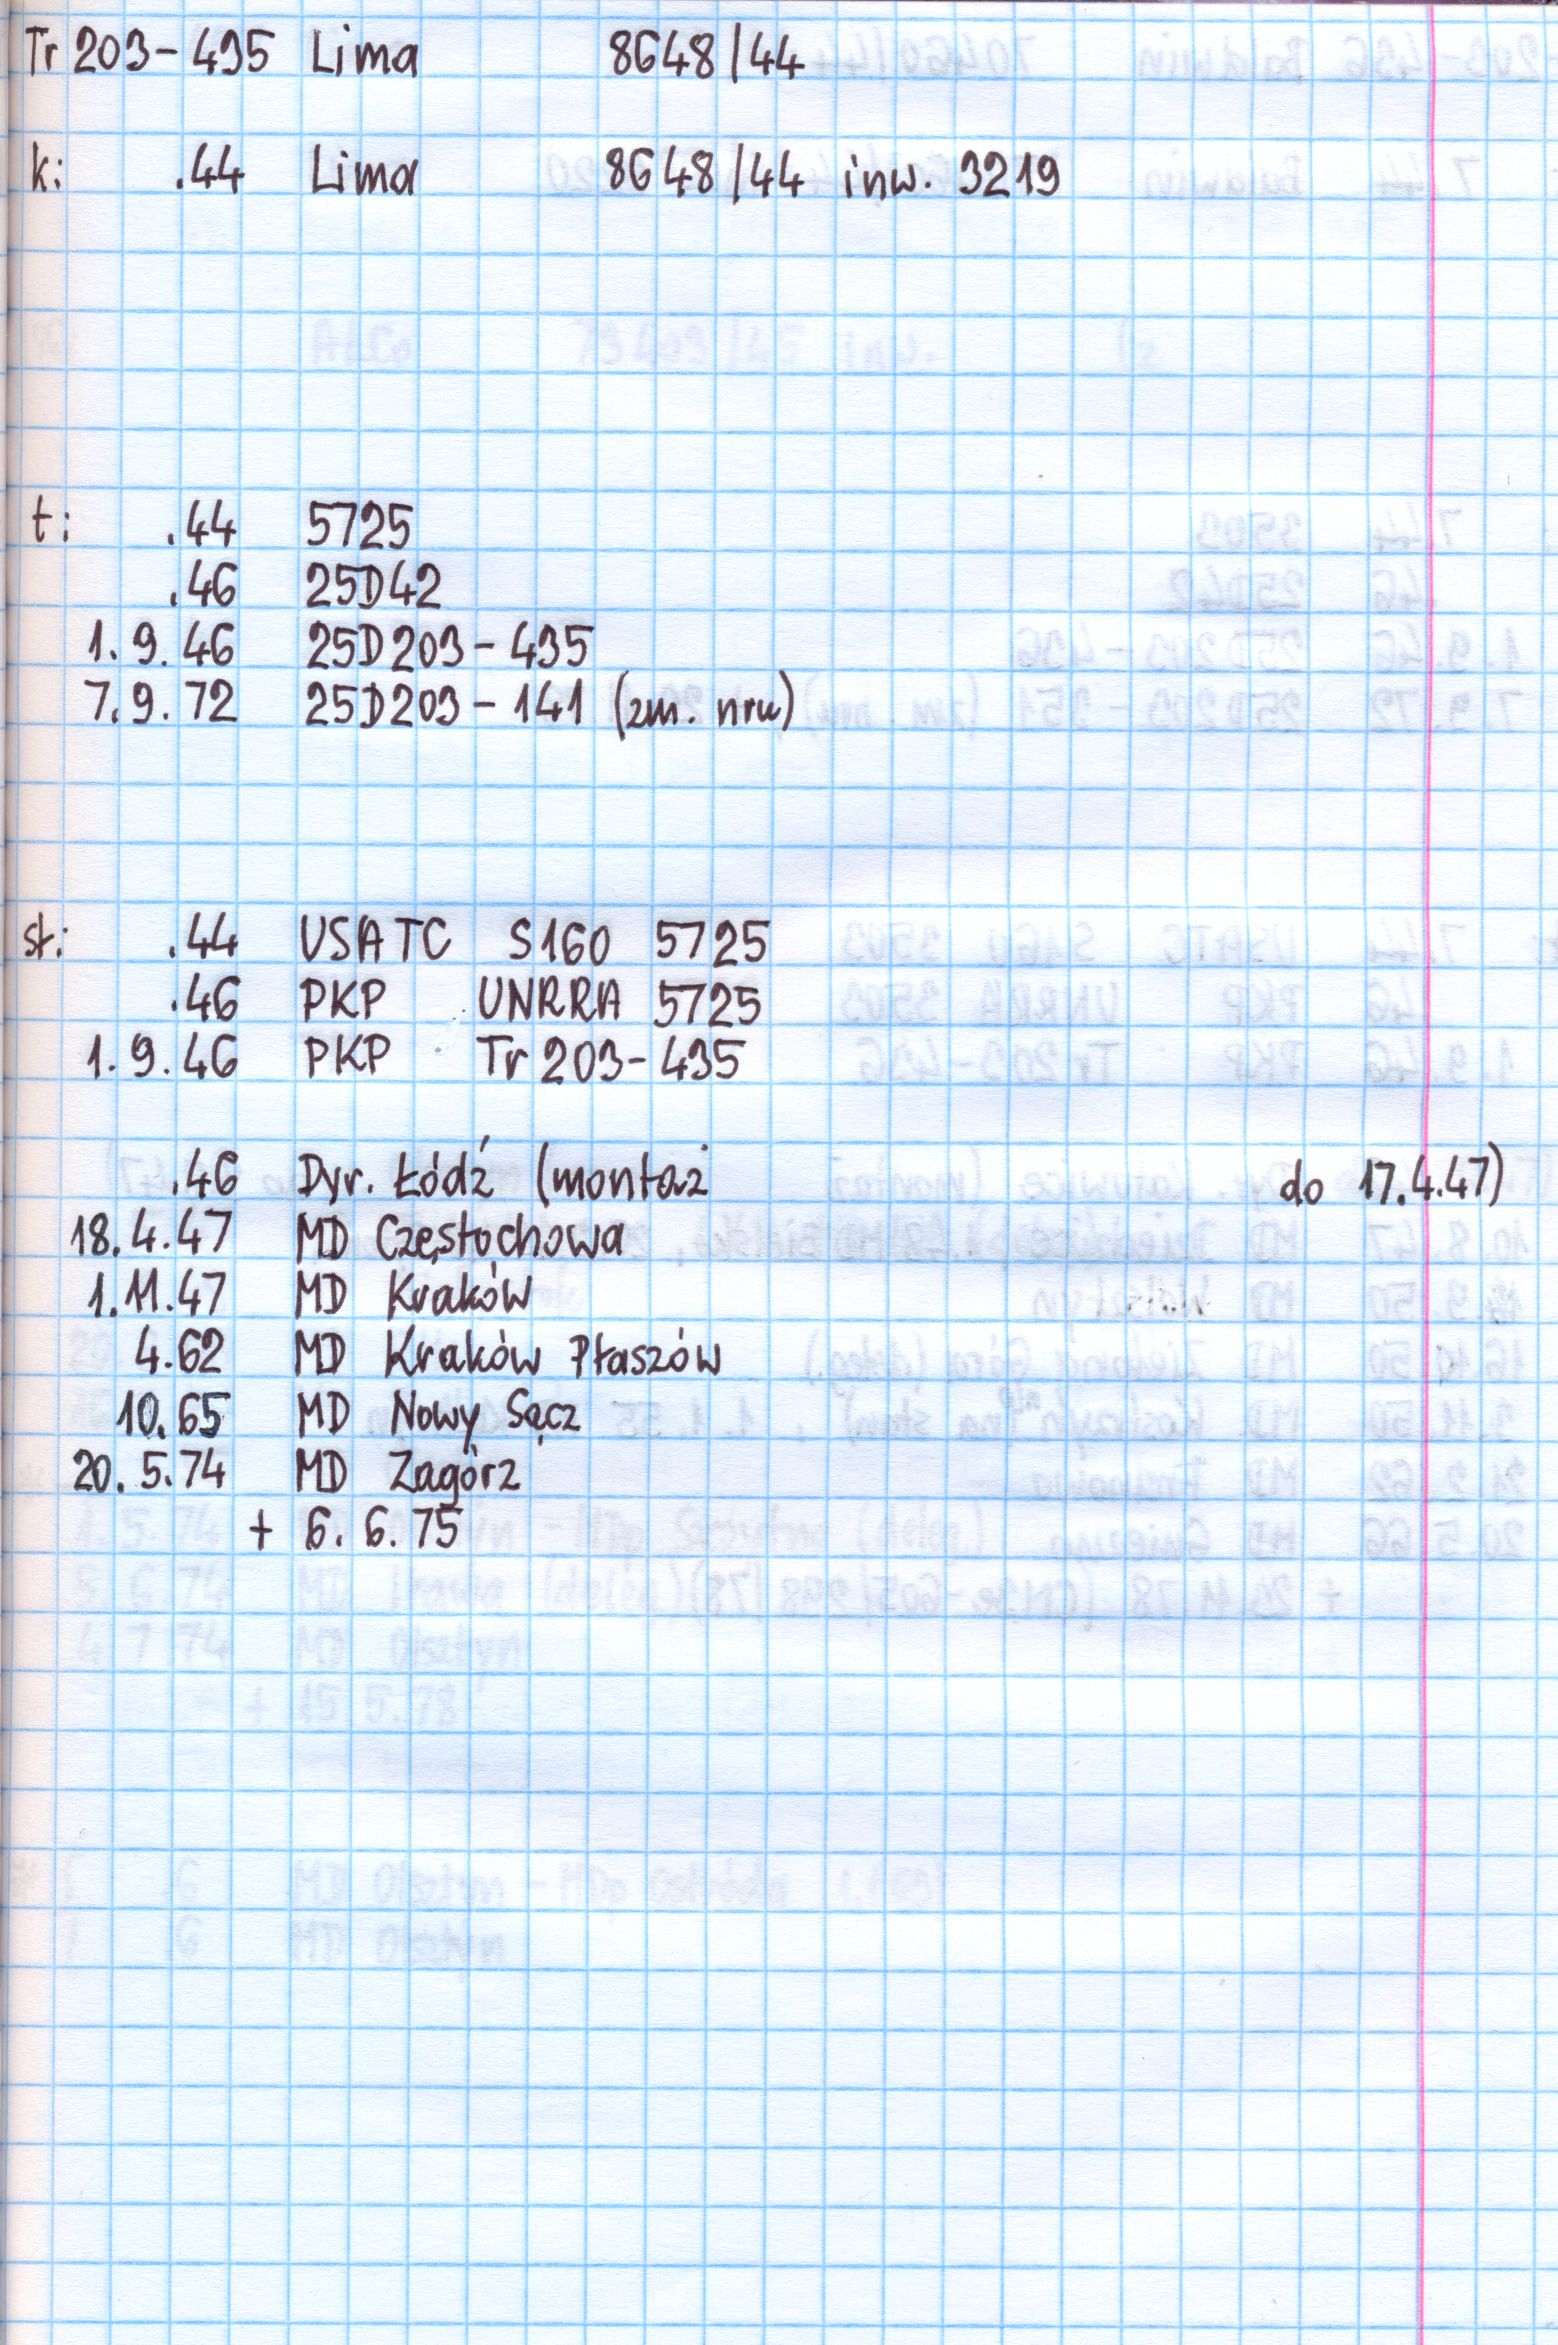 Tr 203-435 Lima 8648/44
k: .44 Lima 8648/44 inw. 3219
t: .44 5725
.46 25D42
1.9.46 25D203-435
7.9.72 25D203-141 (zm. nru)
st: .44 USATC S160 5725
.46 PKP UNRRA 5725
1.9.46 PKP Tr 203-435
.46 Dyr. Łódź (montaż do 17.4.47)
18.4.47 MD Częstochowa
1.11.47 MD Kraków
4.62 MD Kraków Płaszów
10.65 MD Nowy Sącz
20.5.74 MD Zagórz
+ 6.6.75